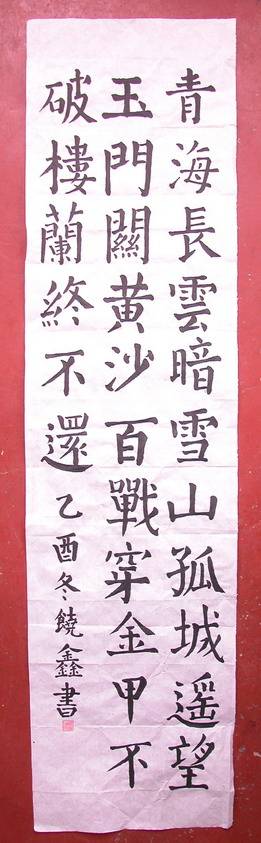 青海長雲暗雪山孤城遥望
玉門關黄沙百戰穿金甲不
破樓蘭終不還乙酉冬饒鑫書